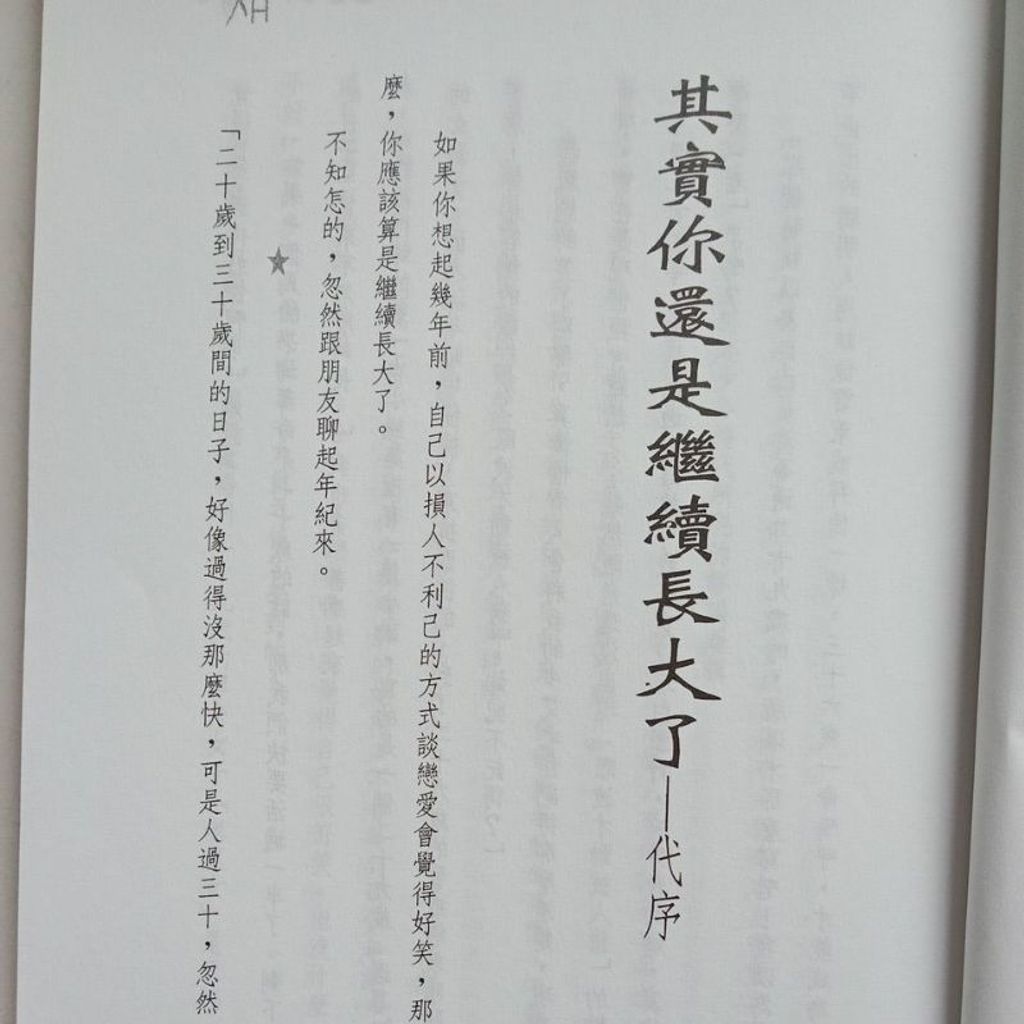 其實你還是繼續長大了—代序
如果你想起幾年前，自己以損人不利己的方式談戀愛會覺得好笑，那
麼，你應該算是繼續長大了。
不知怎的，忽然跟朋友聊起年紀來。
★
「二十歲到三十歲間的日子，好像過得沒那麼快，可是人過三十，忽然